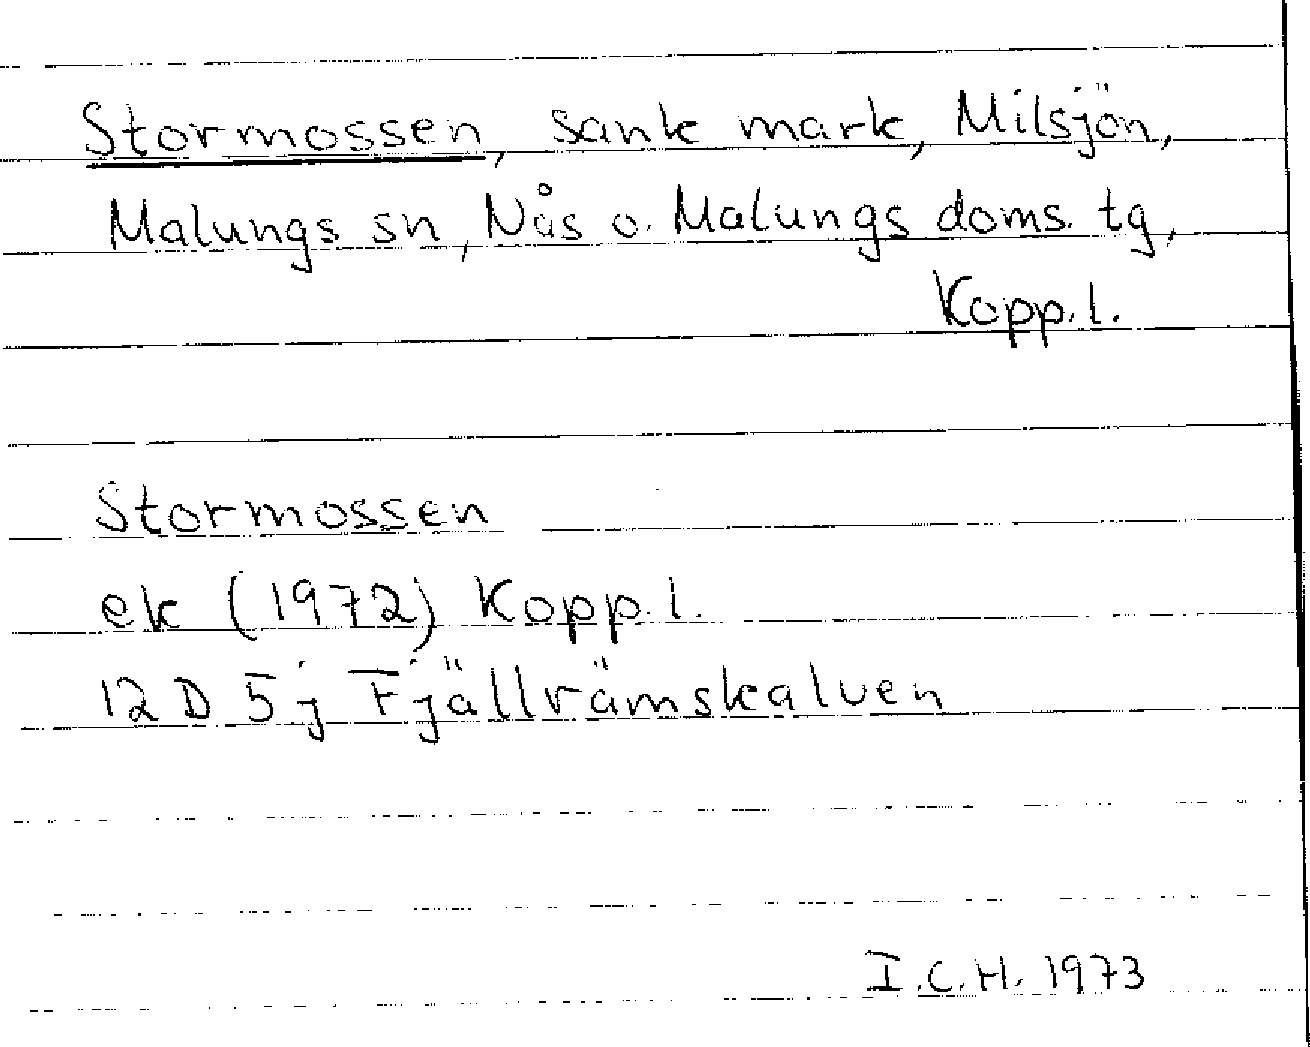 Stormossen, sank mark, Milsjön,
Malungs sn, Nås o. Malungs doms. tg,
Kopp. l.
Stormossen
ek (1972) Kopp. l.
12 D 5 j Fjällrämskalven
I.C.H. 1973